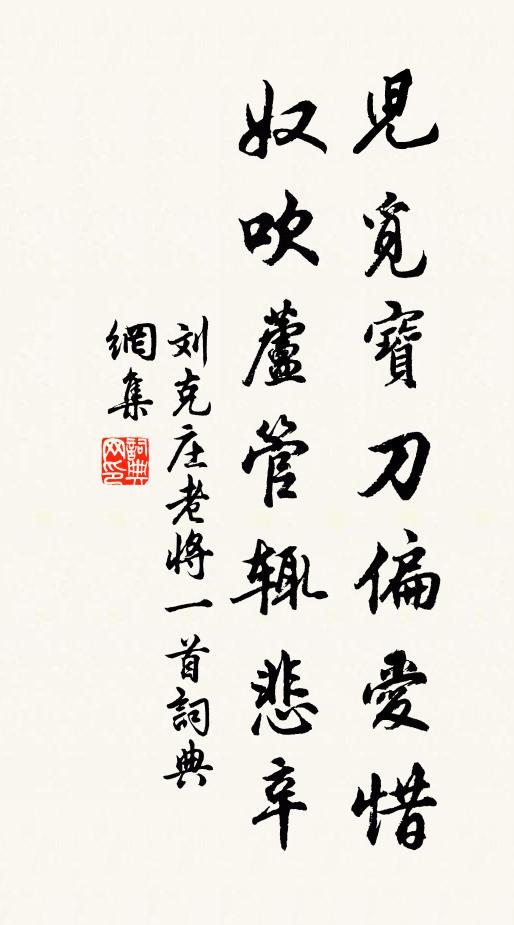 児覓寶刀偏愛惜
奴吹蘆管辄悲辛
刘克庄老将一首詞典
網集
詞典网印